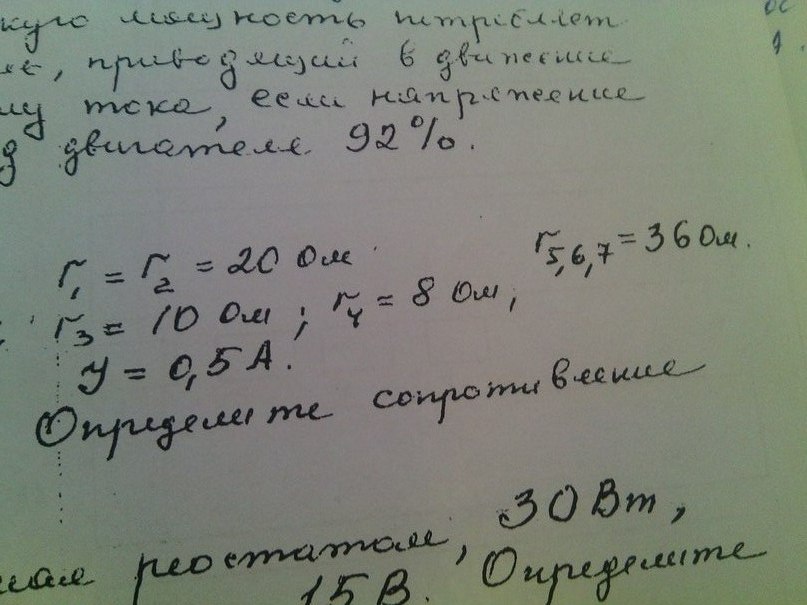 кую мощность потребляет
приводящий в движение
тока, если напряжение
двигателя 92%.
r₁ = r₂ = 20 Ом r₅,₆,₇ = 36 Ом.
r₃ = 10 Ом ; r₄ = 8 Ом ;
У = 0,5 А.
Определите сопротивление
реостатом, 30 Вт,
15 В. Определите